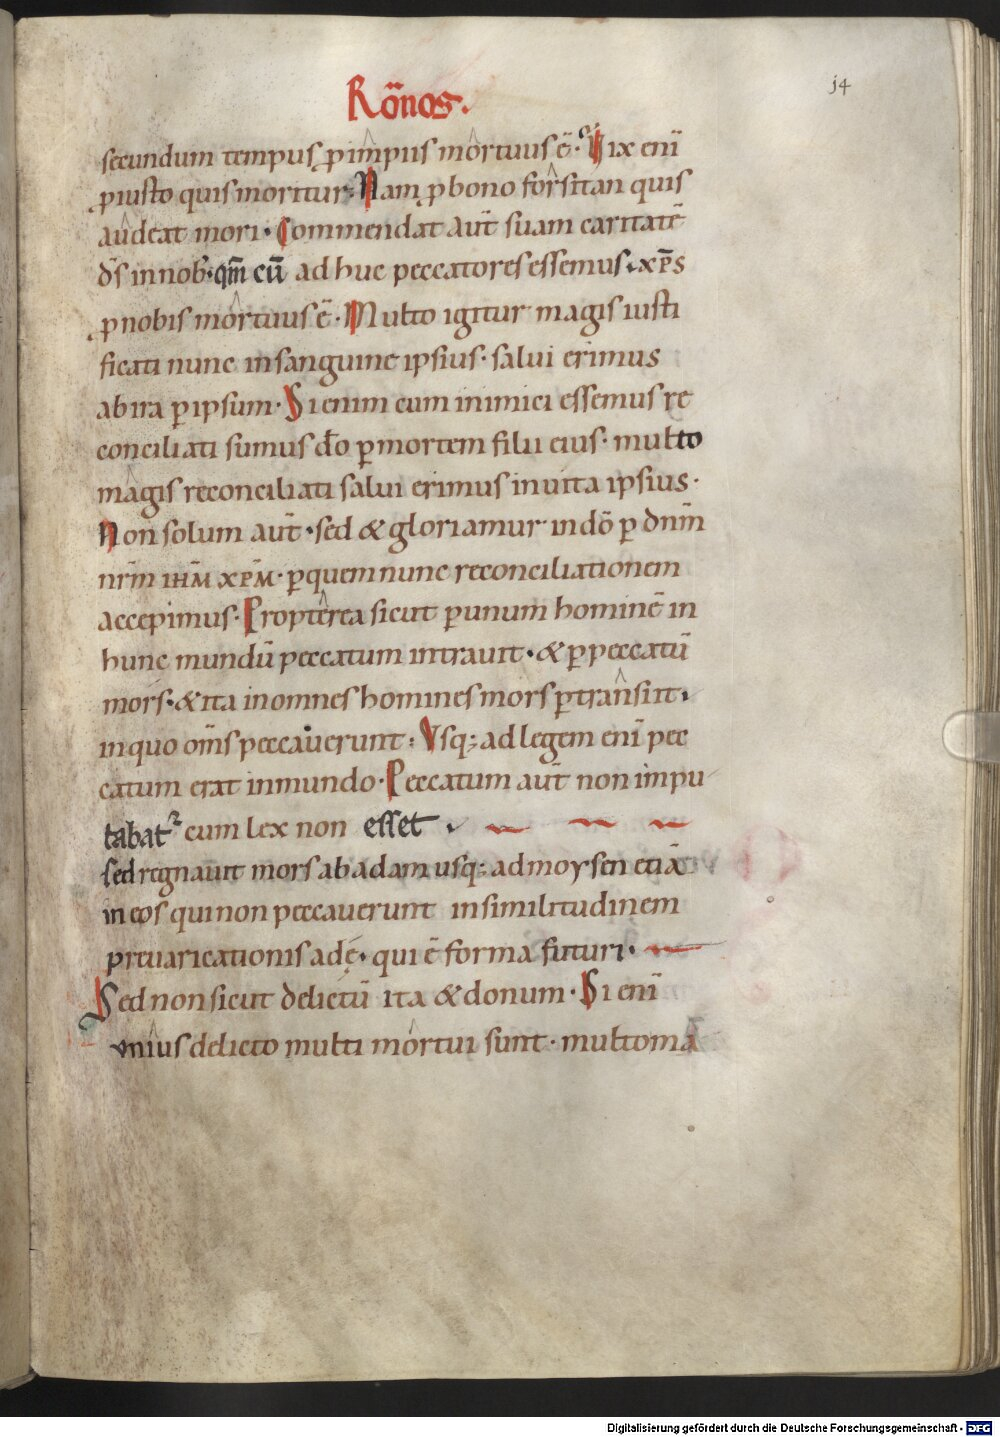 Rōnos.
14
secundum tempus ꝓ impiis mortuus ē. Vix eni̅
ꝓ iusto quis moritur. Nam ꝓ bono forsitan quis
audeat mori. Commendat aut̅ suam caritatē
ds̅ in nob̅. qm̅ cū ad huc peccatores essemus. xp̅s
ꝓ nobis mortuus ē. Multo igitur magis iusti
ficati nunc in sanguine ipsius. salui erimus
ab ira ꝑ ipsum. Si enim cum inimici essemus re
conciliati sumus do̅ ꝑ mortem filii eius. multo
magis reconciliati salui erimus in uita ipsius.
Non solum aut̅. sed & gloriamur in dō ꝑ dnm̅
nrm̅ ihm̅ xpm̅. ꝑ quem nunc reconciliationem
accepimus. Propterea sicut ꝑ unum hominē in
hunc mundū peccatum intrauit. & ꝑ peccatū
mors. & ita in omnes homines mors ꝑtransiit.
in quo om̅s peccauerunt. Vsq; ad legem eni̅ pec
catum erat in mundo. Peccatum aut̅ non impu
tabat᷑ cum lex non esset.
sed regnauit mors ab adam usq; ad moysen etiā
in eos qui non peccauerunt in similitudinem
preuaricationis adę. qui ē forma futuri.
Sed non sicut delictū ita & donum. Si eni̅
unius delicto multi mortui sunt. multo ma
Digitalisierung gefördert durch die Deutsche Forschungsgemeinschaft - DFG